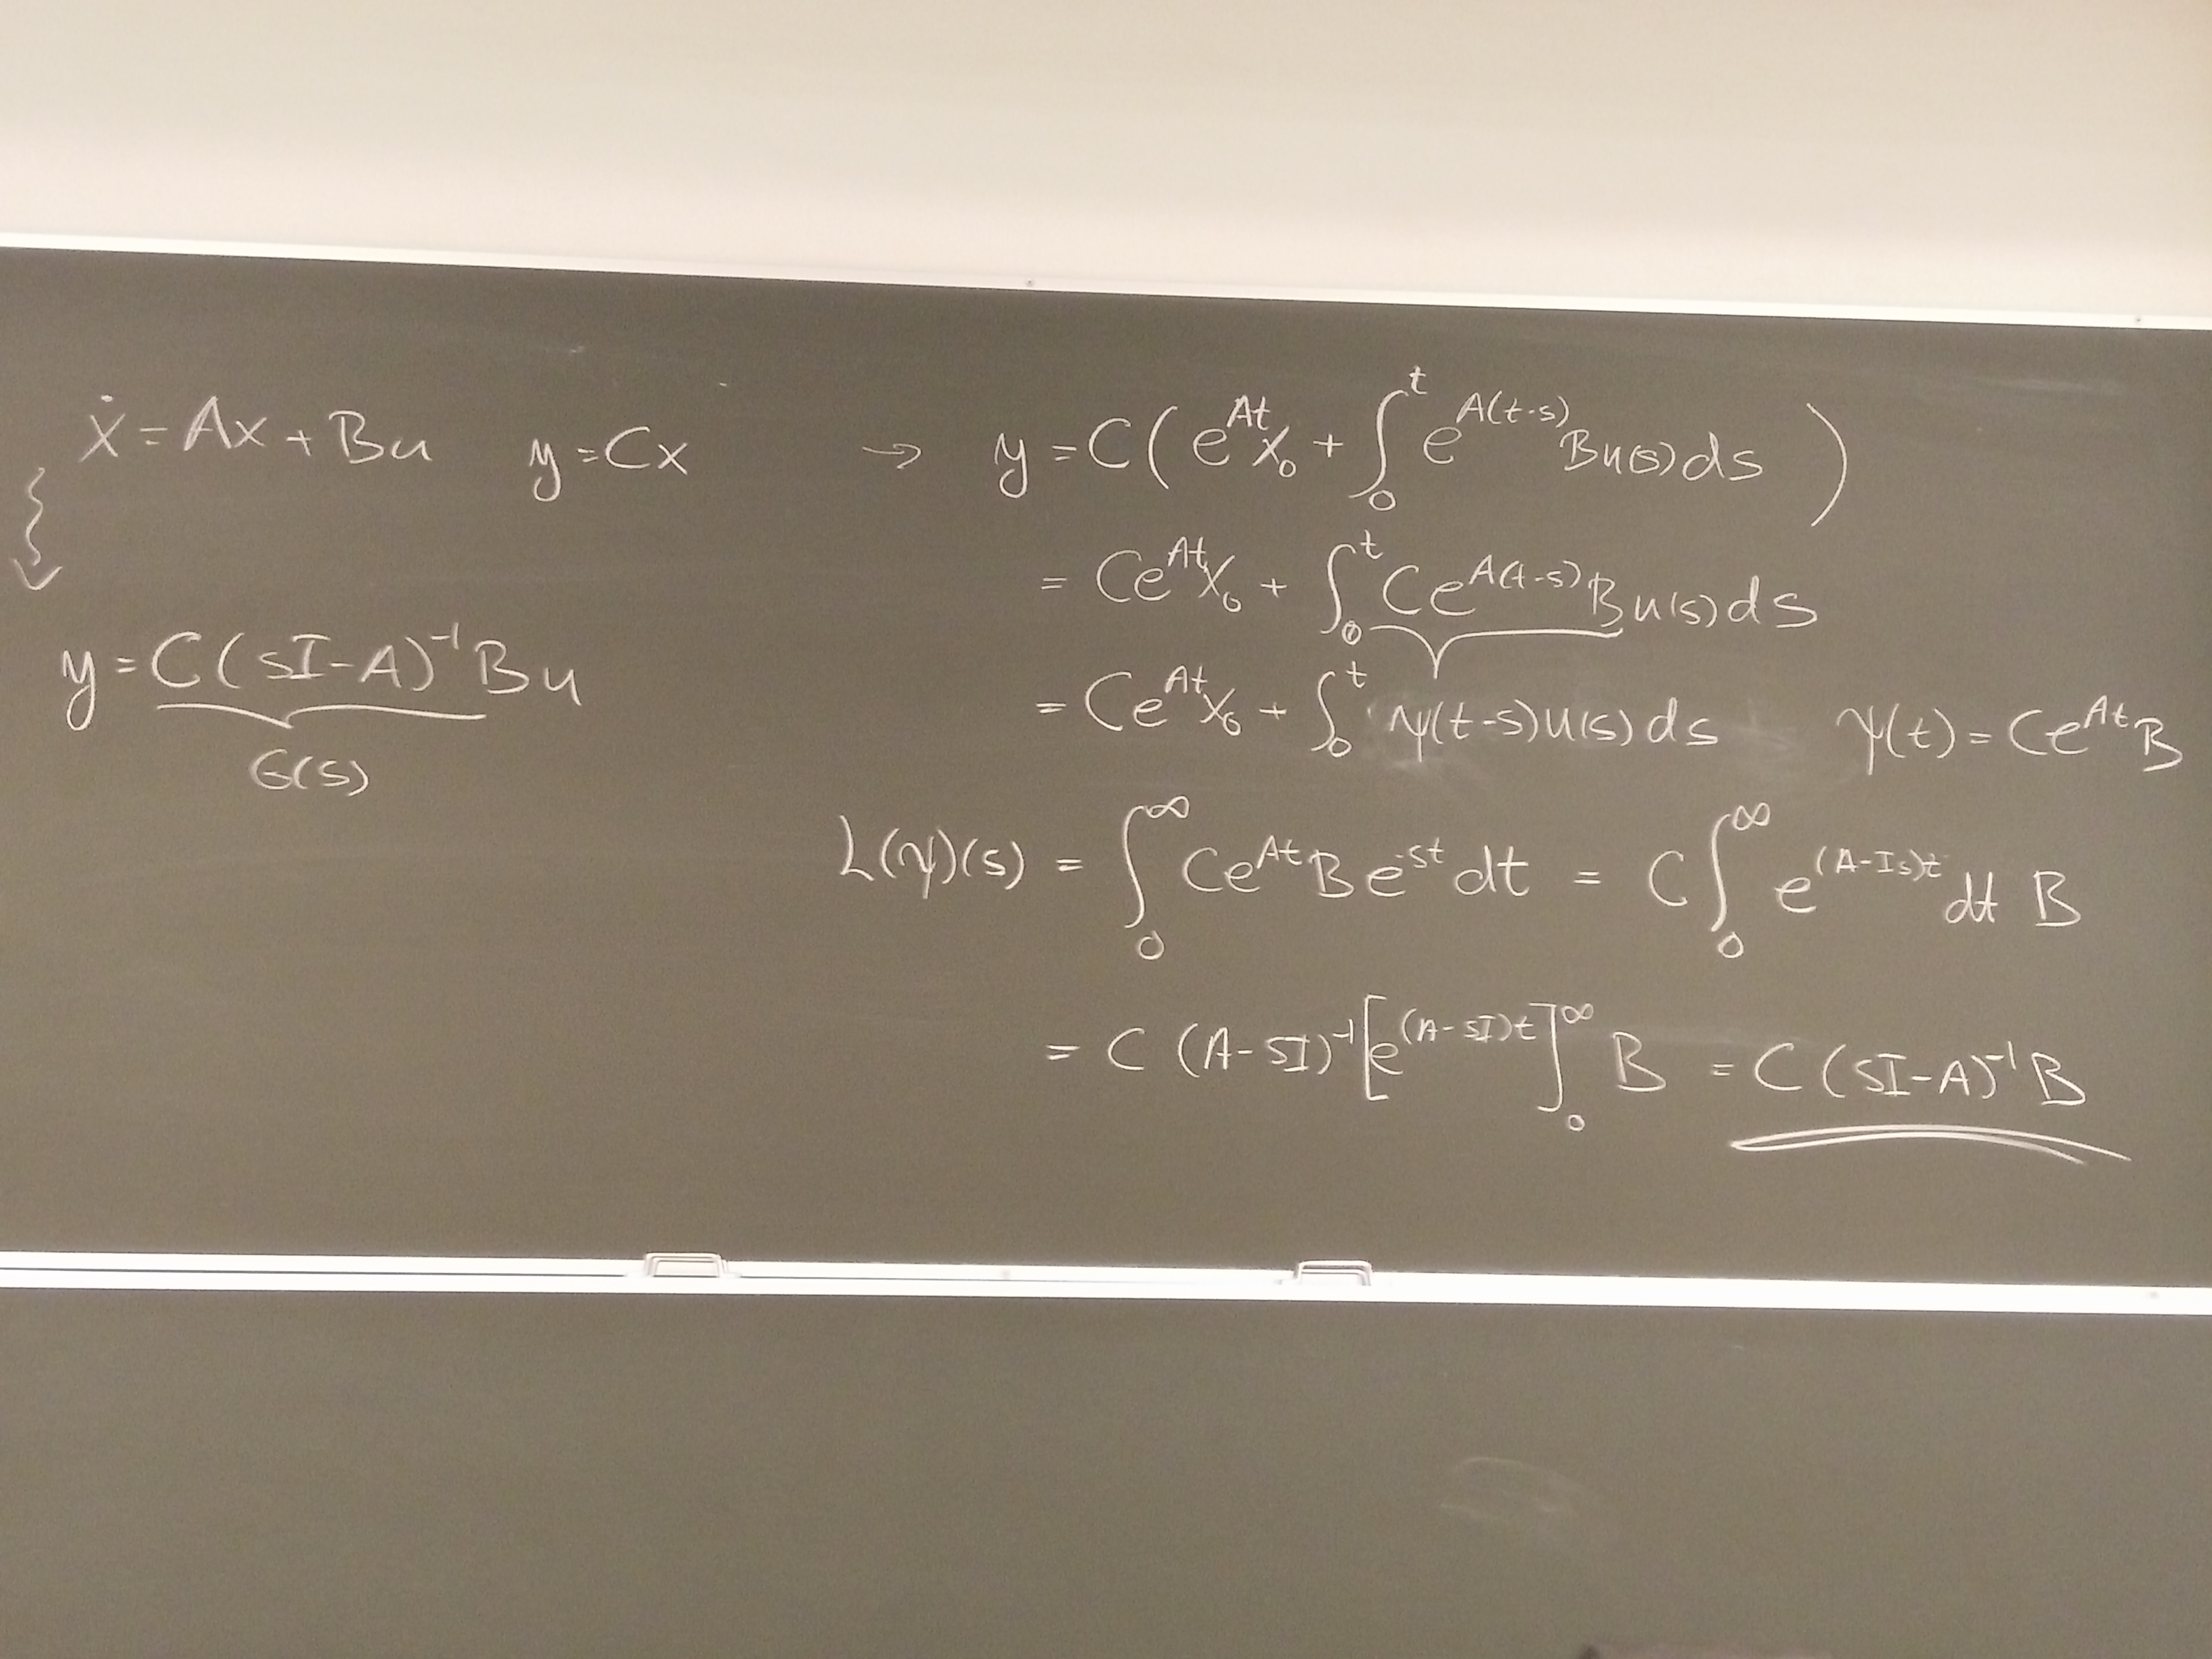 ẋ = Ax + Bu y = Cx → y = C( e^{At} x₀ + ∫₀^t e^{A(t-s)} Bu(s) ds )
= Ce^{At} x₀ + ∫₀^t Ce^{A(t-s)} B u(s) ds
y = C(sI-A)^{-1} Bu
G(s)
= Ce^{At} x₀ + ∫₀^t ψ(t-s) u(s) ds ψ(t) = Ce^{At} B
L(ψ)(s) = ∫₀^∞ Ce^{At} B e^{-st} dt = C ∫₀^∞ e^{(A-Is)t} dt B
= C (A-sI)^{-1} [e^{(A-sI)t}]₀^∞ B = C(sI-A)^{-1} B